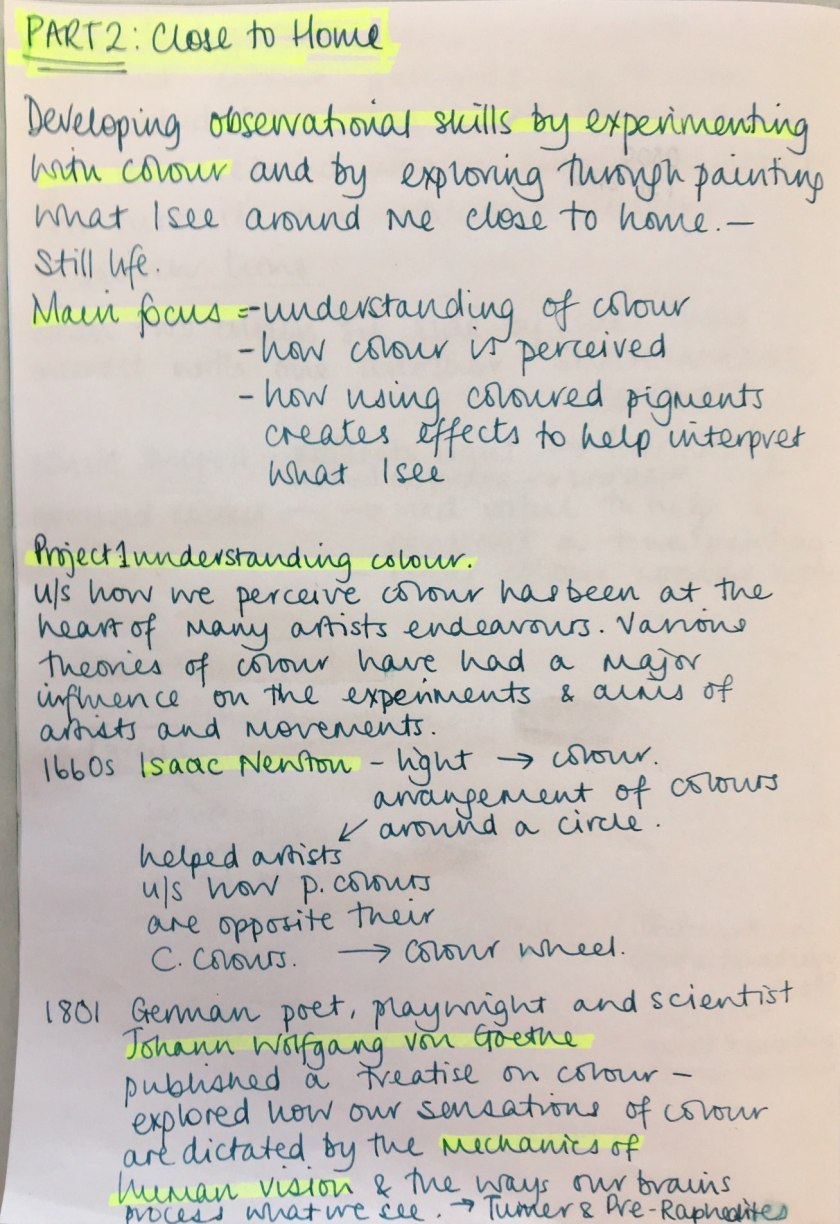 PART 2: Close to Home
Developing observational skills by experimenting
with colour and by exploring through painting
what I see around me close to home. —
Still life.
Main focus = - understanding of colour
- how colour is perceived
- how using coloured pigments
creates effects to help interpret
what I see
Project 1 understanding colour.
u/s how we perceive colour has been at the
heart of many artists endeavours. Various
theories of colour have had a major
influence on the experiments & aims of
artists and movements.
1660s Isaac Newton - light → colour.
arrangement of colours
↙ around a circle.
helped artists
u/s how p. colours
are opposite their
C. Colours. → colour wheel.
1801 German poet, playwright and scientist
Johann Wolfgang von Goethe
published a treatise on colour —
explored how our sensations of colour
are dictated by the mechanics of
human vision & the ways our brains
process what we see. → Turner & Pre-Raphaelites